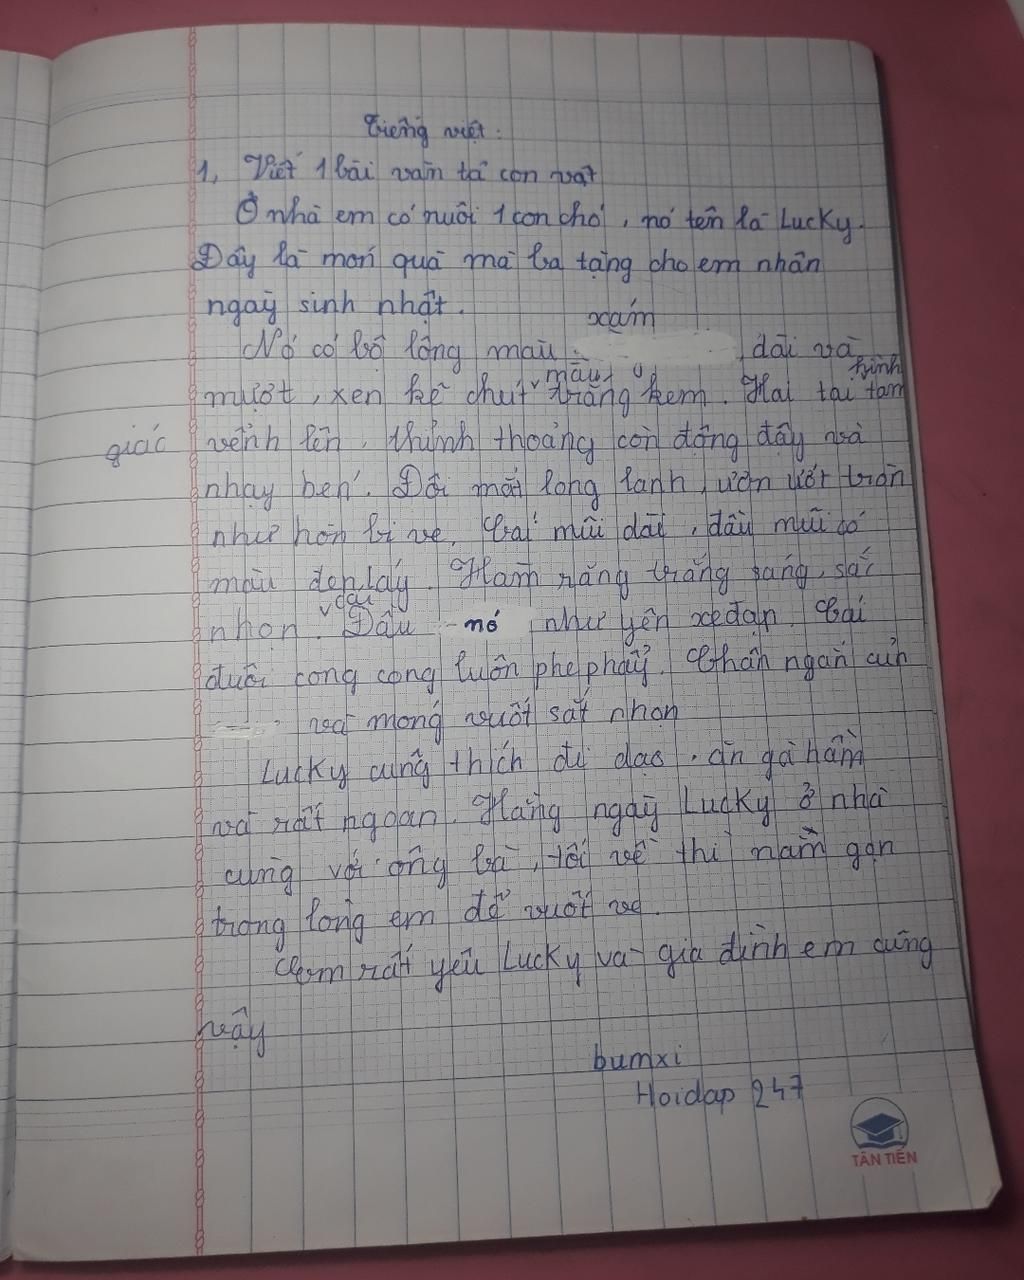 Tiếng việt:
1, Viết 1 bài văn tả con vật
Ở nhà em có nuôi 1 con chó, nó tên là Lucky.
Đây là món quà mà ba tặng cho em nhân
ngaỳ sinh nhật.
xám
Nó có bộ lông màu dài và
màu hình
mượt, xen kẽ chút trắng kem. Hai tai tam
giác vểnh lên, thỉnh thoảng còn động đậy và
nhạy bén. Đôi mắt long lanh, ươn ướt tròn
như hòn bi ve. Cái mũi dài, đầu mũi có
màu đen láy. Hàm răng trắng sáng, sắc
dài
nhọn. Đầu nó như yên xe đạp. Cái
đuôi cong cong luôn phe phẩy. Chân ngắn củn
và móng vuốt sắt nhọn
Lucky cũng thích đi dạo, ăn gà hầm
và rất ngoan. Hằng ngaỳ Lucky ở nhà
cùng với ông bà, tối về thì nằm gọn
trong lòng em để vuốt ve.
Em rất yêu Lucky và gia đình em cũng
vậy
bumxi
Hoidap 247
TÂN TIẾN